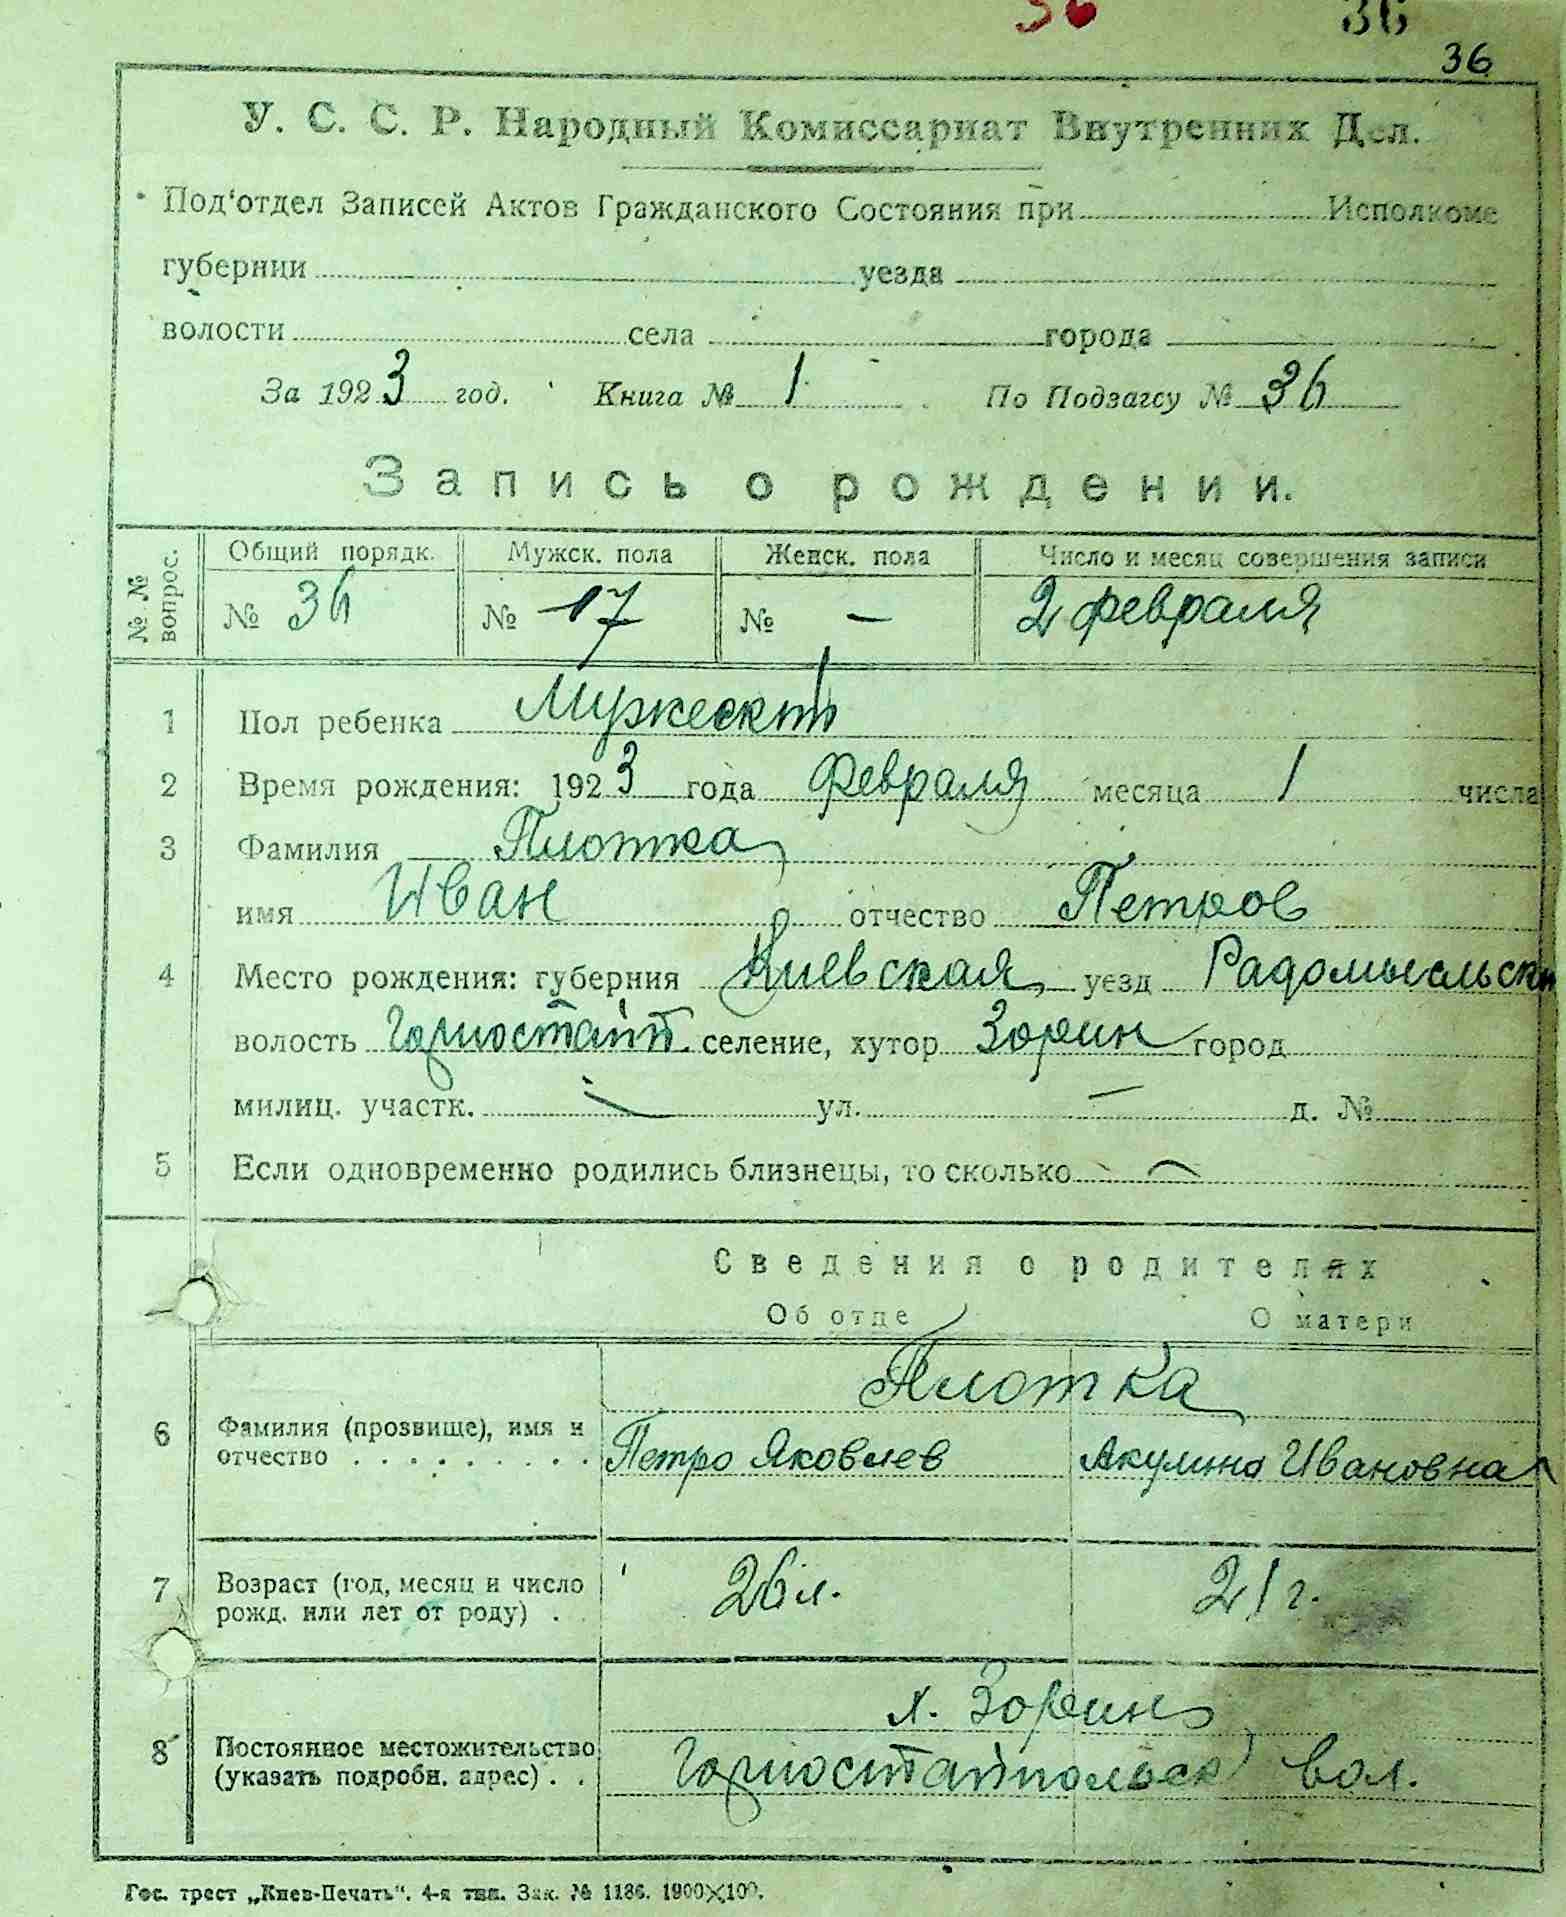 36 36
36
У. С. С. Р. Народный Комиссариат Внутренних Дел.
Под‘отдел Записей Актов Гражданского Состояния при Исполкоме
губернии уезда
волости села города
За 1923 год. Книга № 1 По Подзагсу № 36
Запись о рождении.
№ № вопрос. Общий порядк. Мужск. пола Женск. пола Число и месяц совершения записи
№ 36 № 17 № — 2 февраля
1 Пол ребенка Мужеск
2 Время рождения: 1923 года Февраля месяца 1 числа
3 Фамилия Плотка
имя Иван отчество Петров
4 Место рождения: губерния Киевская уезд Радомысльск
волость Горностайп. селение, хутор Зорин город
милиц. участк. — ул. — д. №
5 Если одновременно родились близнецы, то сколько —
Сведения о родителях
Об отце О матери
Плотка
6 Фамилия (прозвище), имя и
отчество . . . . . . . . . Петро Яковлев Акулина Ивановна
7 Возраст (год, месяц и число
рожд. или лет от роду) . . 26 л. 21 г.
х. Зорин
8 Постоянное местожительство
(указать подробн. адрес) . . Горностайпольск вол.
Гос. трест „Киев-Печать“. 4-я тип. Зак. № 1186. 1900×100.